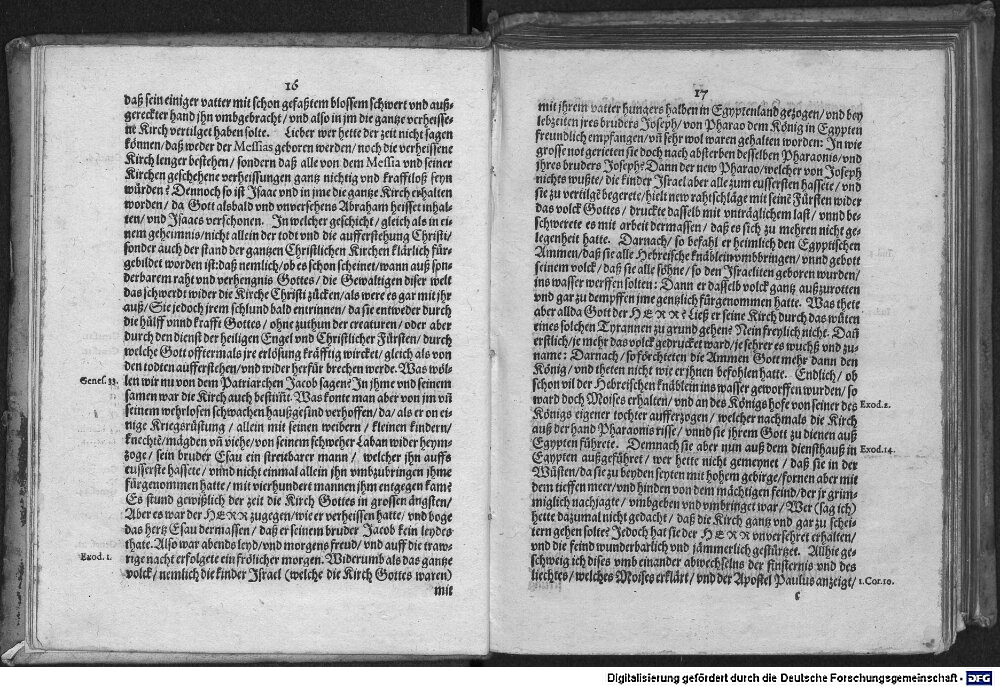 16
daß sein einiger vatter mit schon gefaßtem blossem schwert vnd auß-
gereckter hand jhn vmbgebracht / vnd also in jm die gantze verheisse-
ne Kirch vertilget haben solte. Lieber wer hette der zeit nicht sagen
können / daß weder der Messias geboren werden / noch die verheissene
Kirch lenger bestehen / sondern daß alle von dem Messia vnd seiner
Kirchen geschehene verheissungen gantz nichtig vnd krafftloß seyn
würden? Dennoch so ist Isaac vnd in jme die gantze Kirch erhalten
worden / da Gott alsbald vnd vnversehens Abraham heisset inhal-
ten / vnd Isaacs verschonen. In welcher geschicht / gleich als in ei-
nem geheimnis / nicht allein der todt vnd die aufferstehung Christi /
sonder auch der stand der gantzen Christlichen Kirchen klärlich für-
gebildet worden ist: daß nemlich / ob es schon scheinet / wann auß son-
derbarem raht vnd verhengnis Gottes / die Gewaltigen diser welt
das schwerdt wider die Kirche Christi zücken / als were es gar mit jhr
auß / Sie jedoch jrem schlund bald entrinnen / da sie entweder durch
die hülff vnnd krafft Gottes / ohne zuthun der creaturen / oder aber
durch den dienst der heiligen Engel vnd Christlicher Fürsten / durch
welche Gott offtermals jre erlösung kräfftig wircket / gleich als von
den todten aufferstehen / vnd wider herfür brechen werde. Was wöl-
Genes. 33. len wir nu von dem Patriarchen Jacob sagen? In jhme vnd seinem
samen war die Kirch auch bestim̃t. Was konte man aber von jm vñ
seinem wehrlosen schwachen haußgesind verhoffen / da / als er on ei-
nige Kriegsrüstung / allein mit seinen weibern / kleinen kindern /
knechtẽ / mägden vñ viehe / von seinem schweher Laban wider heym-
zoge / sein bruder Esau ein streitbarer mann / welcher jhn auffs
eusserste hassete / vnnd nicht einmal allein jhn vmbzubringen jhme
fürgenommen hatte / mit vierhundert mannen jhm entgegen kame?
Es stund gewißlich der zeit die Kirch Gottes in grossen ängsten /
Aber es war der HERR zugegen / wie er verheissen hatte / vnd boge
das hertz Esau dermassen / daß er seinem bruder Jacob kein leydes
thate. Also war abends leyd / vnd morgens freud / vnd auff die traw-
Exod. 1. rige nacht erfolgete ein frölicher morgen. Widerumb als das gantze
volck / nemlich die kinder Israel (welche die Kirch Gottes waren)
mit
17
mit jhrem vatter hungers halben in Egyptenland gezogen / vnd bey
lebzeiten jres bruders Joseph / von Pharao dem König in Egypten
freundlich empfangen / vñ sehr wol waren gehalten worden: In wie
grosse not gerieten sie doch nach absterben desselben Pharaonis / vnd
jhres bruders Joseph? Dann der new Pharao / welcher von Joseph
nichts wußte / die kinder Israel aber alle zum eussersten hassete / vnd
sie zu vertilgẽ begerete / hielt new rahtschläge mit seinẽ Fürsten wider
das volck Gottes / druckte dasselb mit vnträglichem last / vnnd be-
schwerete es mit arbeit dermassen / daß es sich zu mehren nicht ge-
legenheit hatte. Darnach / so befahl er heimlich den Egyptischen
Ammen / daß sie alle Hebreische knäblein vmbbringen / vnnd gebott
seinem volck / daß sie alle söhne / so den Israeliten geboren wurden /
ins wasser werffen solten: Dann er dasselb volck gantz außzurotten
vnd gar zu dempffen jme gentzlich fürgenommen hatte. Was thete
aber allda Gott der HERR? Ließ er seine Kirch durch das wüten
eines solchen Tyrannen zu grund gehen? Nein freylich nicht. Dañ
erstlich / je mehr das volck gedrucket ward / je sehrer es wuchß vnd zu-
name: Darnach / so förchteten die Ammen Gott mehr dann den
König / vnd theten nicht wie er jhnen befohlen hatte. Endlich / ob
schon vil der Hebreischen knäblein ins wasser geworffen wurden / so
ward doch Moises erhalten / vnd an des Königs hofe von seiner des Exod. 2.
Königs eigener tochter aufferzogen / welcher nachmals die Kirch
auß der hand Pharaonis risse / vnnd sie jhrem Gott zu dienen auß
Egypten führete. Demnach sie aber nun auß dem diensthauß in Exod. 14.
Egypten außgeführet / wer hette nicht gemeynet / daß sie in der
Wüsten / da sie zu beyden seyten mit hohem gebirge / fornen aber mit
dem tieffen meer / vnd hinden von dem mächtigen feind / der jr grim-
miglich nachjagte / vmbgeben vnd vmbringet war / Wer (sag ich)
hette dazumal nicht gedacht / daß die Kirch gantz vnd gar zu schei-
tern gehen solte? Jedoch hat sie der HERR vnversehret erhalten /
vnd die feind wunderbarlich vnd jämmerlich gestürtzet. Allhie ge-
schweig ich dises vmb einander abwechselns der finsternis vnd des
liechtes / welches Moises erklärt / vnd der Apostel Paulus anzeigt / 1. Cor. 10.
c
Digitalisierung gefördert durch die Deutsche Forschungsgemeinschaft - DFG